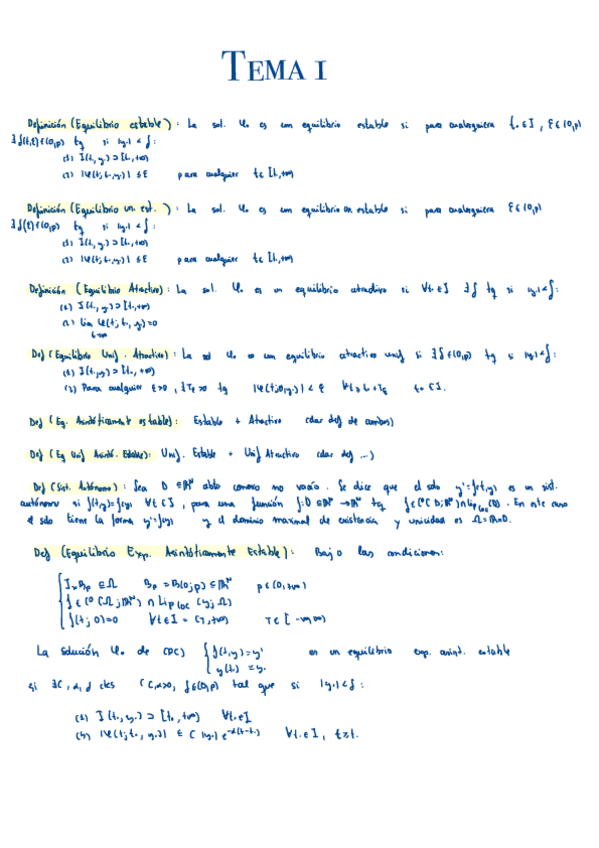 TEMA 1
Definición (Equilibrio estable): La sol. φ₀ es un equilibrio estable si para cualquiera t₀∈I, ε∈(0,ρ)
∃ δ(t₀,ε)∈(0,ρ) tq si |y₀| < δ:
(1) I(t₀,y₀)⊃[t₀,+∞)
(2) |φ(t;t₀,y₀)| ≤ε para cualquier t∈[t₀,+∞)
Definición (Equilibrio un. est.): La sol. φ₀ es un equilibrio un estable si para cualquiera ε∈(0,ρ)
∃ δ(ε)∈(0,ρ) tq si |y₀| < δ:
(1) I(t₀,y₀)⊃[t₀,+∞)
(2) |φ(t;t₀,y₀)| ≤ε para cualquier t∈[t₀,+∞)
Definición (Equilibrio Atractivo): La sol. φ₀ es un equilibrio atractivo si ∀t₀∈I ∃δ tq si |y₀|<δ:
(1) I(t₀,y₀)⊃[t₀,+∞)
(2) lim φ(t;t₀,y₀)=0
t→∞
Def (Equilibrio Unif. Atractivo): La sol φ₀ es un equilibrio atractivo unif si ∃δ∈(0,ρ) tq si |y₀|<δ:
(1) I(t₀,y₀)⊃[t₀,+∞)
(2) Para cualquier ε>0, ∃Tε>0 tq |φ(t;t₀,y₀)| < ε ∀t≥t₀+Tε t₀∈I.
Def (Eq. Asintóticamente estable): Estable + Atractivo (dar def de ambos)
Def (Eq Unif Asint. Estable): Unif. Estable + Unif Atractivo (dar def ...)
Def (Sist. Autónomo): Sea D ⊆ℝᴺ abto conexo no vacío. Se dice que el sdo y'=f(t,y) es un sist.
autónomo si f(t,y)=f(y) ∀t∈I, para una función f:D⊆ℝᴺ→ℝᴺ tq f∈C⁰(D;ℝᴺ)∩Lip_loc(D). En este caso
el sdo tiene la forma y'=f(y) y el dominio maximal de existencia y unicidad es Ω=ℝ×D.
Def (Equilibrio Exp. Asintóticamente Estable): Bajo las condiciones:
I×Bρ ⊆Ω Bρ=B(0;ρ)⊆ℝᴺ ρ∈(0,+∞)
f∈C⁰(Ω;ℝᴺ)∩Lip_loc(y;Ω)
f(t;0)=0 ∀t∈I=(τ,+∞) τ∈[-∞,∞)
La solución φ₀ de (PC) { f(t,y)=y' es un equilibrio exp. asint. estable
y(t₀)=y₀
si ∃C,α,δ ctes (C,α>0, δ∈(0,ρ) tal que si |y₀|<δ:
(1) I(t₀,y₀)⊃[t₀,+∞) ∀t₀∈I
(2) |φ(t;t₀,y₀)| ≤ C|y₀|e^-α(t-t₀) ∀t₀∈I, t≥t₀